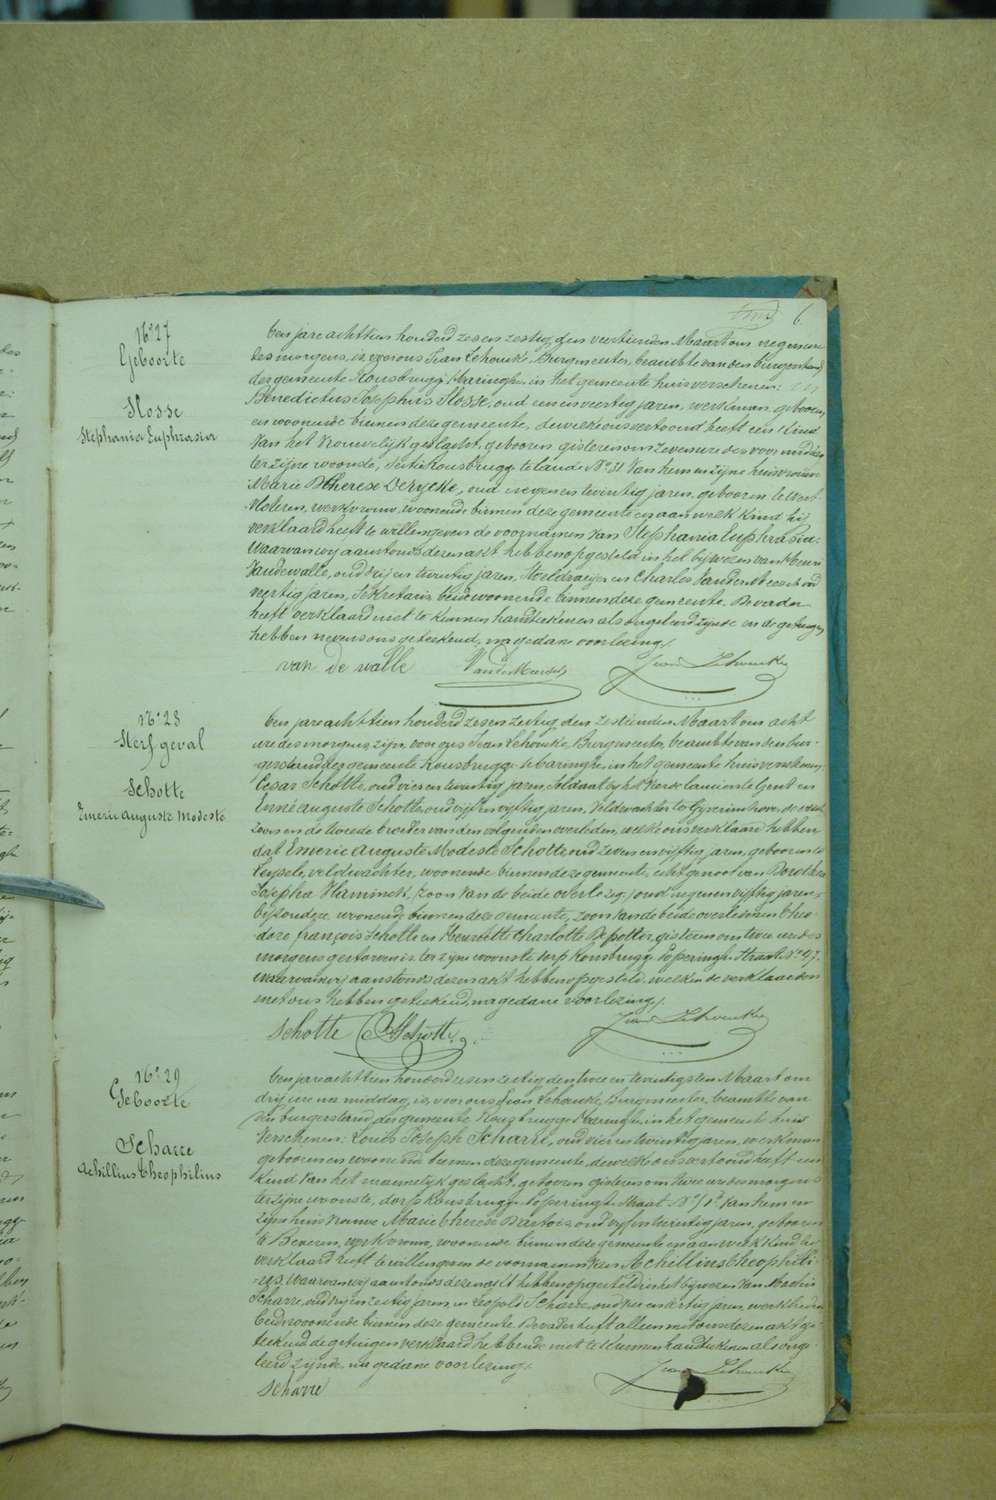 6
N° 27
Geboorte
Slosse
Stephania Euphrasia
Een jare acht tien honderd zes en zestig, den veertienden Maart om negen ure
des morgens, is voor ons Ivan Lehoucke, Burgmeester, beambte van den Burgerstand
der gemeente Rousbrugge Haringhe, in het gemeente huis verschenen:
Benedictus Josephus Slosse, oud een en veertig jaren, werkman, geboren
en woonende binnen deze gemeente, dewelke ons vertoond heeft een kind
van het vrouwelijk geslacht, geboren gisteren om zeven ure des voormiddags
ter zijne woonste, sectie Rousbrugge te lande N° 31 van hem en zijne huisvrouw
Marie Therese Derycke, oud negen en twintig jaren, geboren te West
Vleteren, werkvrouw, woonende binnen deze gemeente en aan welk kind hij
verklaard heeft te willen geven de voornamen van Stephania Euphrasia:
Waarvan wij aanstonds dezen akt hebben opgesteld in het bijwezen van Henri
Vandewalle, oud drij en twintig jaren, Stoeldraeijer en Charles Vandenbroecke oud
veertig jaren, Sekretaris beide woonende binnen deze gemeente. De vader
heeft verklaard niet te kunnen handteekenen als ongeleerd zijnde en de getuigen
hebben nevens ons geteekend, na gedane voorlezing/.
van de walle Ivan Lehoucke
N° 28
Sterfgeval
Schotte
Emeric Auguste Modeste
Een jare acht tien honderd zes en zestig, den zestienden Maart om acht
ure des morgens zijn, voor ons Ivan Lehoucke, Burgmeester, beambte van den bur-
gerstand der gemeente Rousbrugge-Haringhe, in het gemeente huis verschenen:
Cesar Schotte, oud vier en twintig jaren, soldaat by het 
Auguste Schotte, oud vijf en vyftig jaren, Veldwachter te Gyverinkhove, de eerste
zoon en de tweede broeder van den volgenden overleden, welke ons verklaard hebben
dat Emeric Auguste Modeste Schotte, oud zeven en vijftig jaren, geboren te
Leysele, veldwachter, woonende binnen deze gemeente, echtgenoot van Dorothea
Josepha Vlaminck, oud negen en vyftig jaren,
bijzondere, woonende binnen deze gemeente, zoon van de beide overledenen Theo-
dore François Schotte en Henriette Charlotte Depotter, gisteren om twee ure des
morgens gestorven is ter zijne woonste dorp Rousbrugge Poperinghe Straat N° 47.
Waarvan wij aanstonds dezen akt hebben opgesteld, welken de verklaarders
met ons hebben geteekend, na gedane voorlezing/.
Schotte Schotte Ivan Lehoucke
N° 29
Geboorte
Scharre
Achillius Theophilius
Een jare acht tien honderd zes en zestig den twee en twintigsten Maart om
drij ure na middag, is, voor ons Ivan Lehoucke, Burgmeester, beambte van
den burgerstand der gemeente Rousbrugge Haringhe, in het gemeente huis
verschenen: Louis Joseph Scharre, oud vier en twintig jaren, werkman
geboren en woonende binnen deze gemeente, dewelke ons vertoond heeft een
kind van het mannelijk geslacht, geboren gisteren om twee ure des morgens
ter zijne woonste, dorp Rousbrugge Poperinghe Straat van hem en
zijne huisvrouwe Marie Therese Bartois, oud vijf en twintig jaren, geboren
te Beveren, werkvrouw, woonende binnen deze gemeente en aan welk kind hij
verklaard heeft te willen geven de voornamen van Achillius Theophili-
us. Waarvan wij aanstonds dezen akt hebben opgesteld in het bijwezen van
Scharre, oud drij en zestig jaren, en Leopold Scharre, oud vier en dertig jaren, werklieden
beide woonende binnen deze gemeente. De vader heeft alleen met ons dezen akt ge-
teekend de getuigen verklaard hebbende niet te kunnen handteekenen als onge-
leerd zijnde, na gedane voorlezing/.
Scharre Ivan Lehoucke